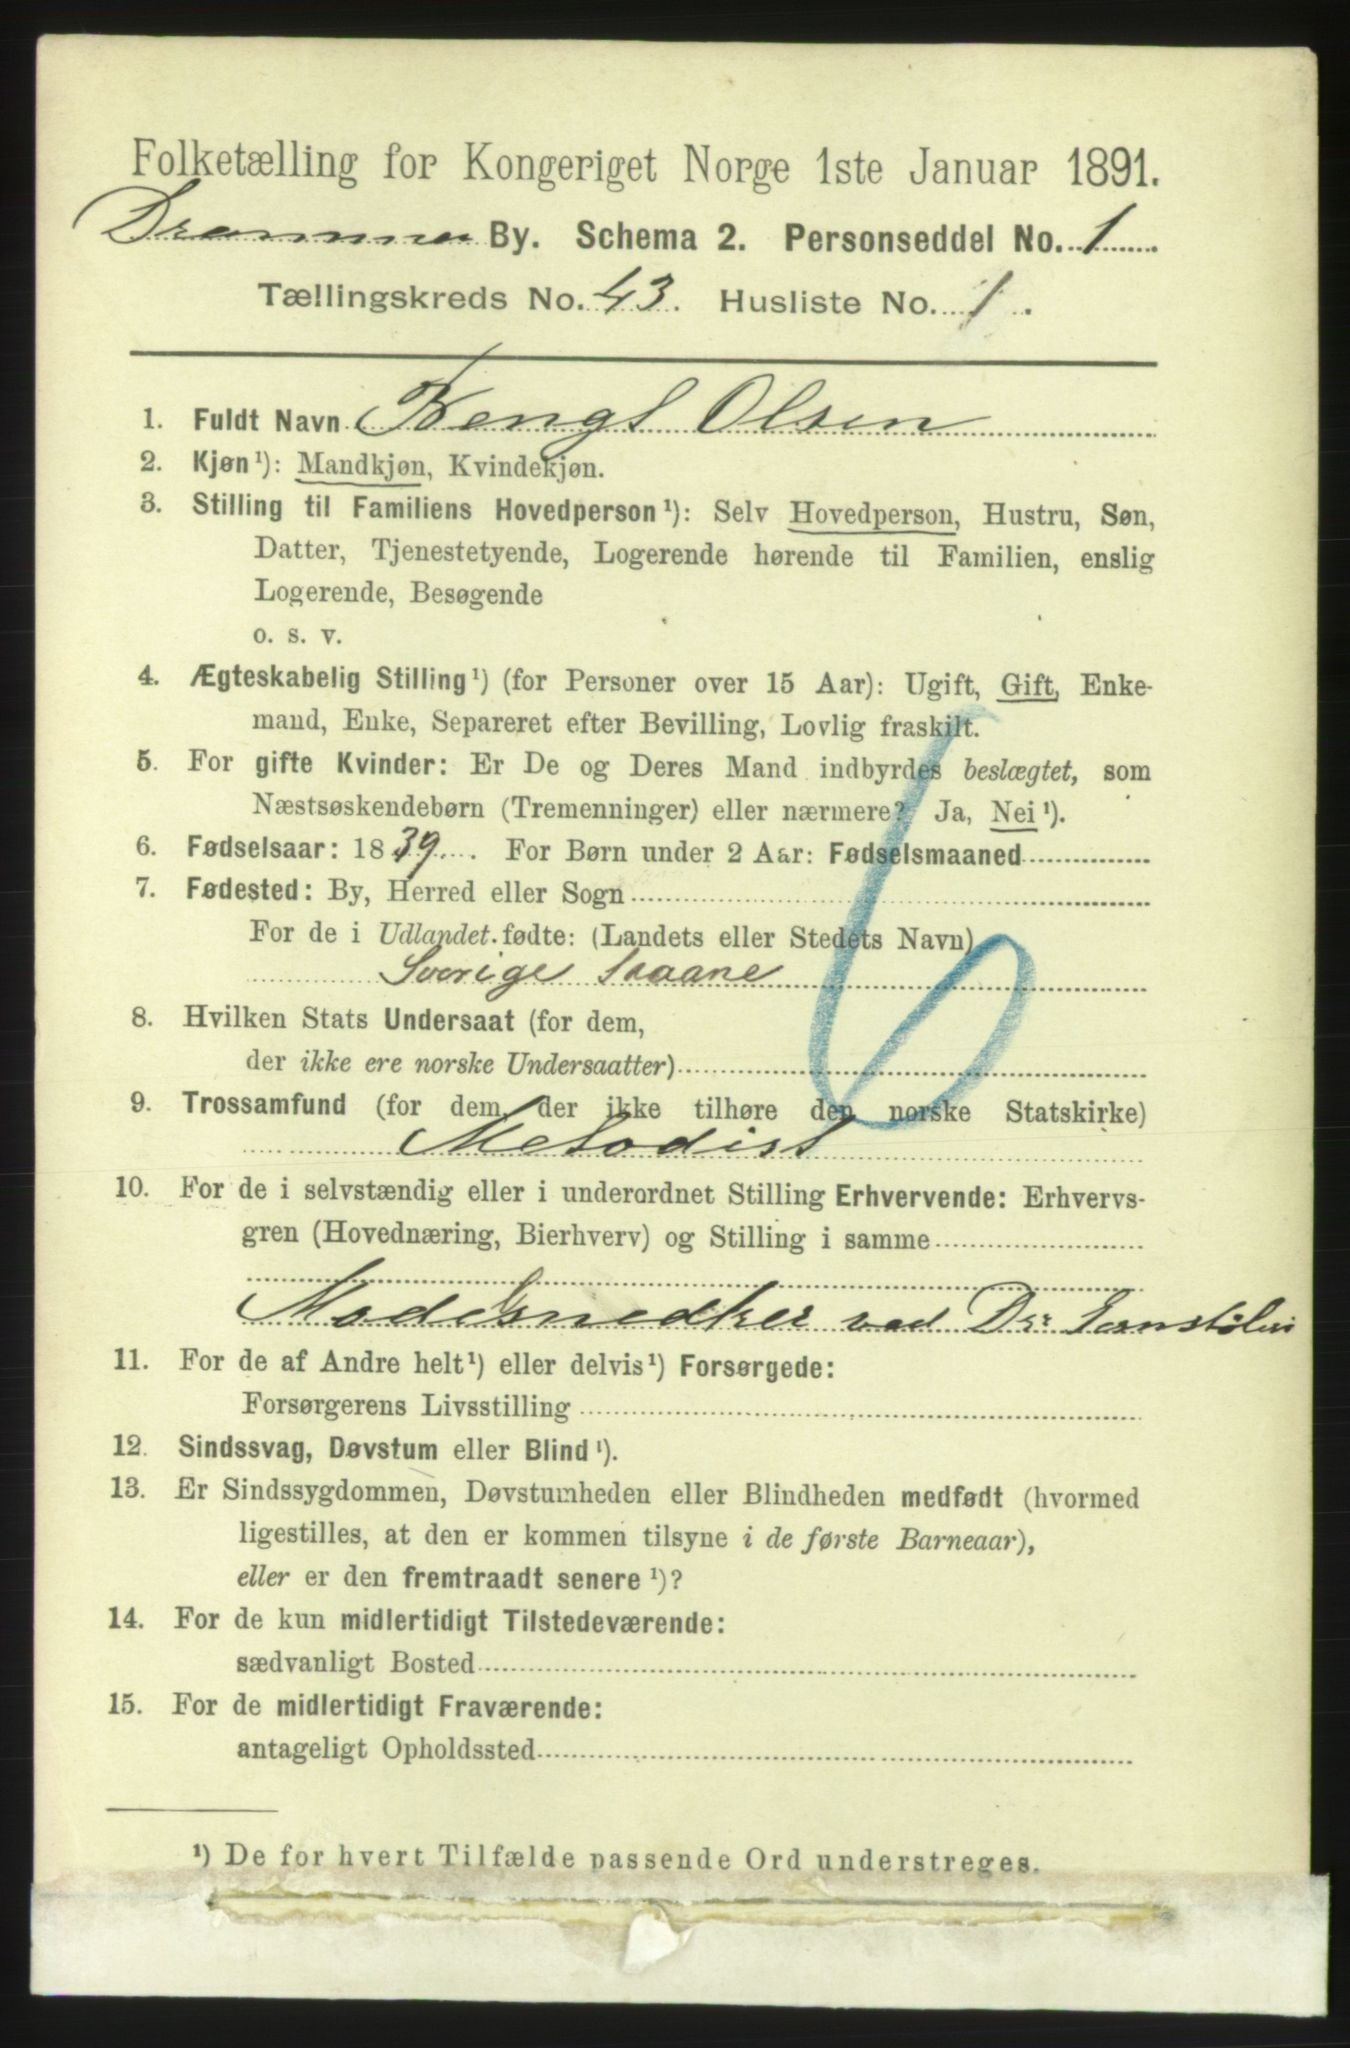 Folketælling for Kongeriget Norge 1ste Januar 1891.
Drammen By. Schema 2. Personseddel No. 1
Tællingskreds No. 43. Husliste No. 1.
1. Fuldt Navn Bengt Olsen
2. Kjøn¹): Mandkjøn, Kvindekjøn.
3. Stilling til Familiens Hovedperson¹): Selv Hovedperson, Hustru, Søn,
Datter, Tjenestetyende, Logerende hørende til Familien, enslig
Logerende, Besøgende
o. s. v.
4. Ægteskabelig Stilling¹) (for Personer over 15 Aar): Ugift, Gift, Enke-
mand, Enke, Separeret efter Bevilling, Lovlig fraskilt.
5. For gifte Kvinder: Er De og Deres Mand indbyrdes beslægtet, som
Næstsøskendebørn (Tremenninger) eller nærmere? Ja, Nei¹).
6. Fødselsaar: 1839. For Børn under 2 Aar: Fødselsmaaned
7. Fødested: By, Herred eller Sogn
For de i Udlandet fødte: (Landets eller Stedets Navn)
Sverige Skaane
8. Hvilken Stats Undersaat (for dem,
der ikke ere norske Undersaatter)
9. Trossamfund (for dem, der ikke tilhøre den norske Statskirke)
Metodist
10. For de i selvstændig eller i underordnet Stilling Erhvervende: Erhvervs-
gren (Hovednæring, Bierhverv) og Stilling i samme
Modelsnedker ved Dr: Jernstøberi
11. For de af Andre helt¹) eller delvis¹) Forsørgede:
Forsørgerens Livsstilling
12. Sindssvag, Døvstum eller Blind¹).
13. Er Sindssygdommen, Døvstumheden eller Blindheden medfødt (hvormed
ligestilles, at den er kommen tilsyne i de første Barneaar),
eller er den fremtraadt senere¹)?
14. For de kun midlertidigt Tilstedeværende:
sædvanligt Bosted
15. For de midlertidigt Fraværende:
antageligt Opholdssted
¹) De for hvert Tilfælde passende Ord understreges.